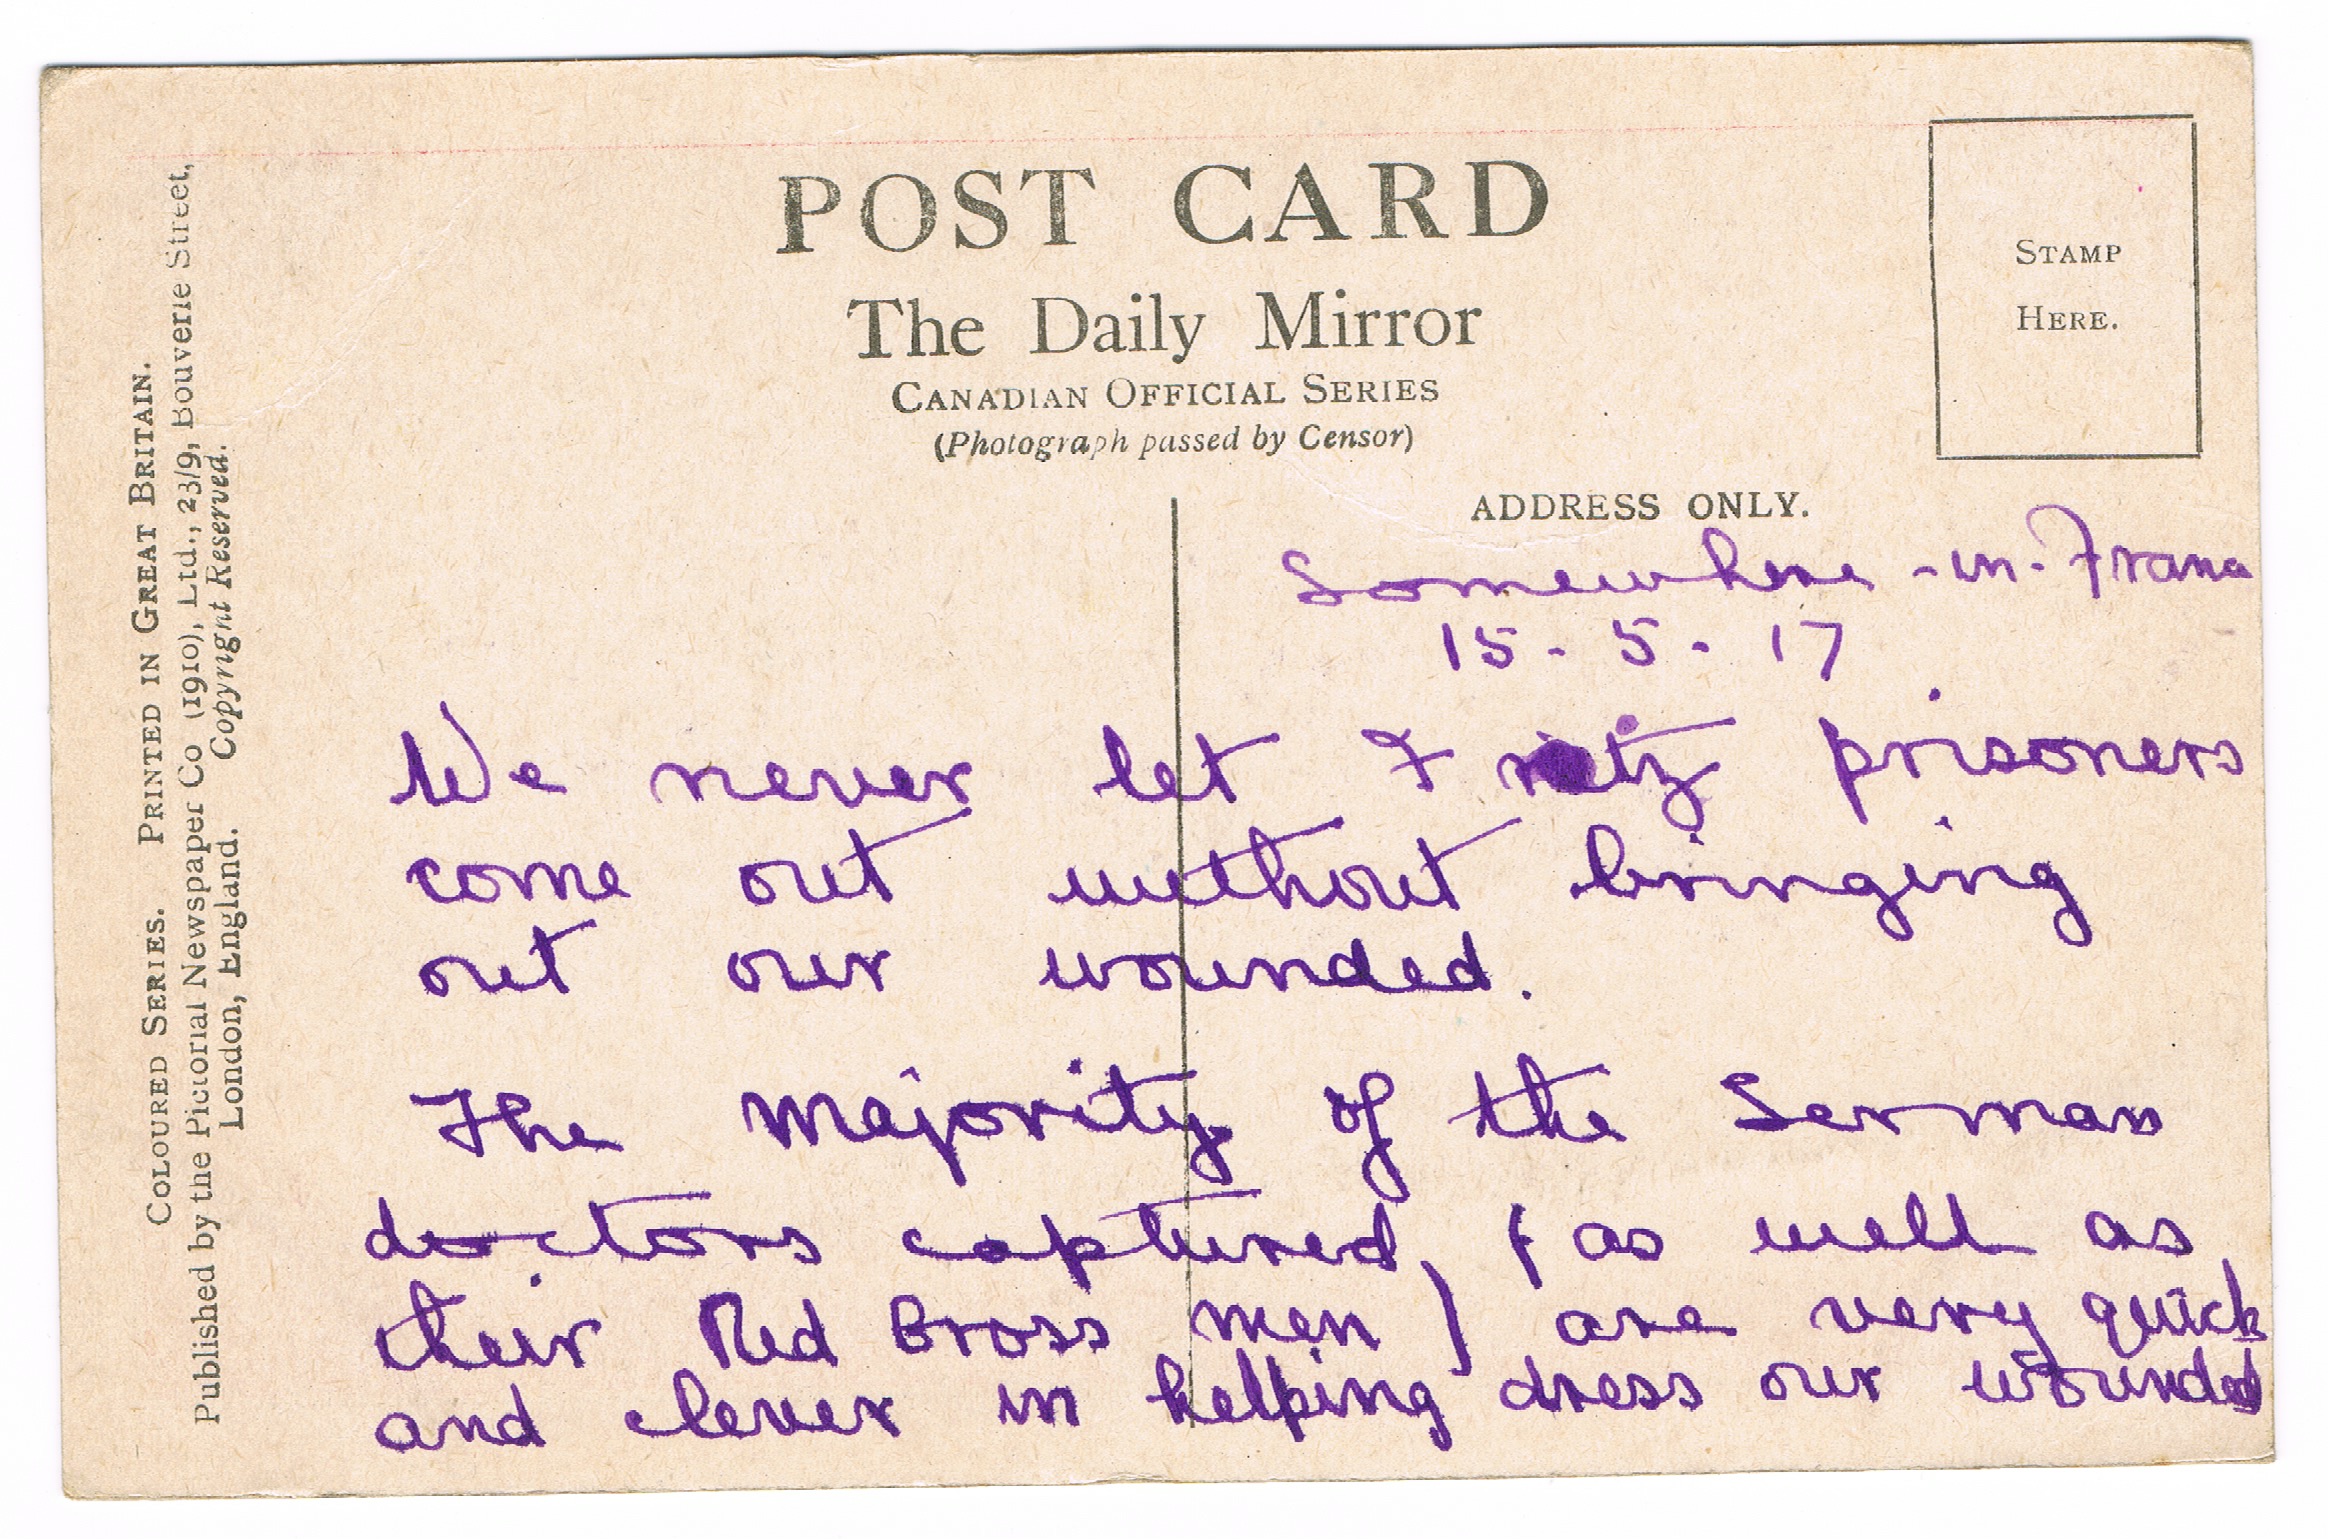 POST CARD
The Daily Mirror
CANADIAN OFFICIAL SERIES
(Photograph passed by Censor)
STAMP
HERE.
ADDRESS ONLY.
COLOURED SERIES. PRINTED IN GREAT BRITAIN.
Published by the Pictorial Newspaper Co (1910), Ltd., 23/9, Bouverie Street,
London, England. Copyright Reserved.
Somewhere -in- France
15 - 5 - 17
We never let Fritz prisoners
come out without bringing
out our wounded.
The majority of the German
doctors captured, (as well as
their Red Cross men) are very quick
and clever in helping dress our wounded